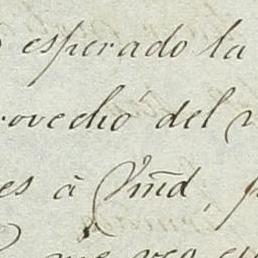 esperado la
rovechó del
es à Vmd,
que vea